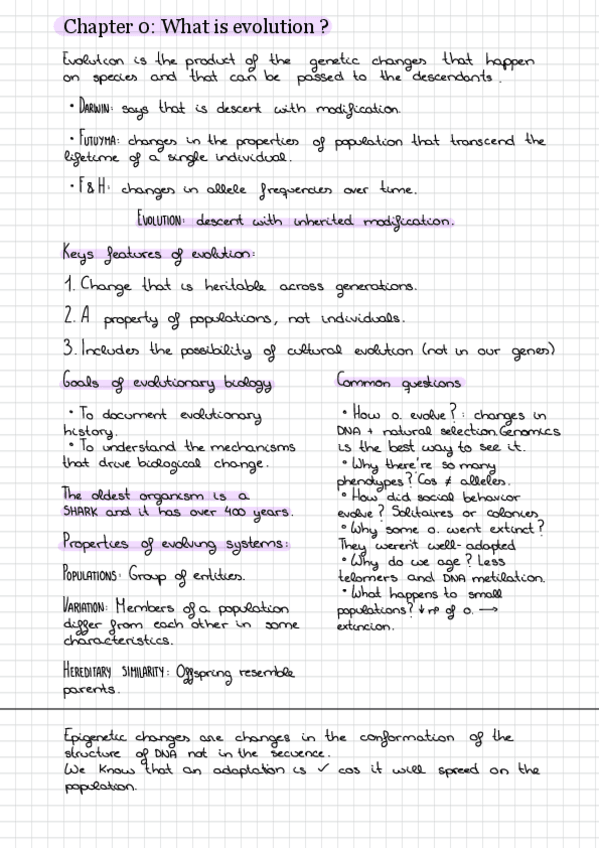 Chapter 0: What is evolution ?
Evolution is the product of the genetic changes that happen
on species and that can be passed to the descendants.
• DARWIN: says that is descent with modification.
• FUTUYMA: changes in the properties of population that transcend the
lifetime of a single individual.
• F & H: changes in allele frequencies over time.
EVOLUTION: descent with inherited modification.
Keys features of evolution:
1. Change that is heritable across generations.
2. A property of populations, not individuals.
3. Includes the possibility of cultural evolution (not in our genes)
Goals of evolutionary biology
• To document evolutionary
history.
• To understand the mechanisms
that drive biological change.
The oldest organism is a
SHARK and it has over 400 years.
Properties of evolving systems:
POPULATIONS: Group of entities.
VARIATION: Members of a population
differ from each other in some
characteristics.
HEREDITARY SIMILARITY: Offspring resemble
parents.
Common questions
• How o. evolve? : changes in
DNA + natural selection. Genomics
is the best way to see it.
• Why there're so many
phenotypes? Cos ≠ alleles.
• How did social behavior
evolve? Solitaires or colonies
• Why some o. went extinct?
They weren't well-adapted
• Why do we age? Less
telomers and DNA metilation.
• What happens to small
populations? ↓ nº of o. →
extincion.
Epigenetic changes are changes in the conformation of the
structure of DNA not in the secuence.
We know that an adaptation is ✓ cos it will spread on the
population.